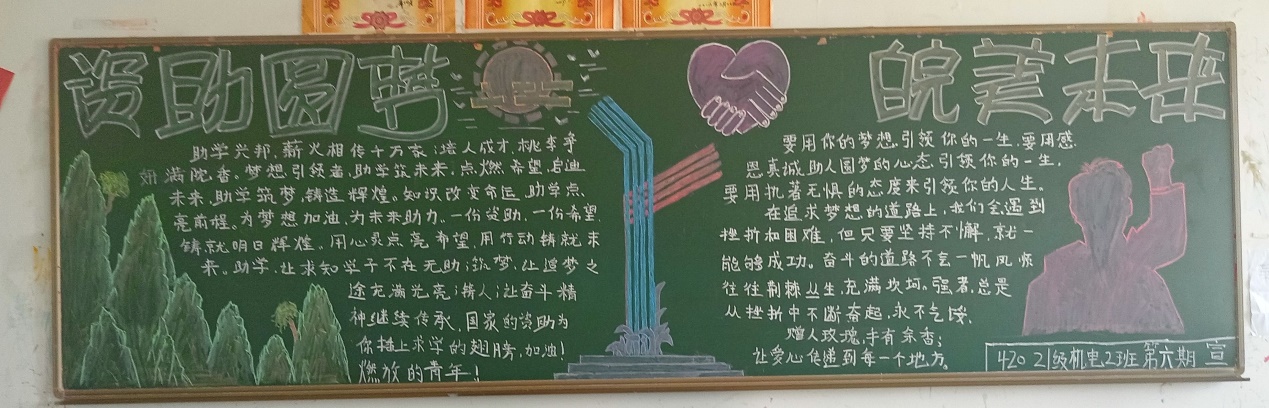 资助圆梦
皖美未来
助学兴邦,薪火相传十万家;培人成才,桃李争
妍满院香。梦想引领者,助学筑未来,点燃希望,启迪
未来,助学筑梦,铸造辉煌。知识改变命运,助学点
亮前程。为梦想加油,为未来助力。一份资助,一份希望,
铸就明日辉煌。用心灵点亮希望,用行动铸就未
来。助学,让求知学子不在无助;筑梦,让追梦之
途充满光亮;铸人;让奋斗精
神继续传承,国家的资助为
你插上求学的翅膀,加油!
燃放的青年!
要用你的梦想引领你的一生,要用感
恩真诚助人圆梦的心态引领你的一生,
要用执著无惧的态度来引领你的人生。
在追求梦想的道路上,我们会遇到
挫折和困难,但只要坚持不懈,就一
能够成功。奋斗的道路不会一帆风顺
往往荆棘丛生,充满坎坷。强者,总是
从挫折中不断奋起,永不气馁。
赠人玫瑰,手有余香;
让爱心传递到每一个地方。
4202级机电2班第六期 宣